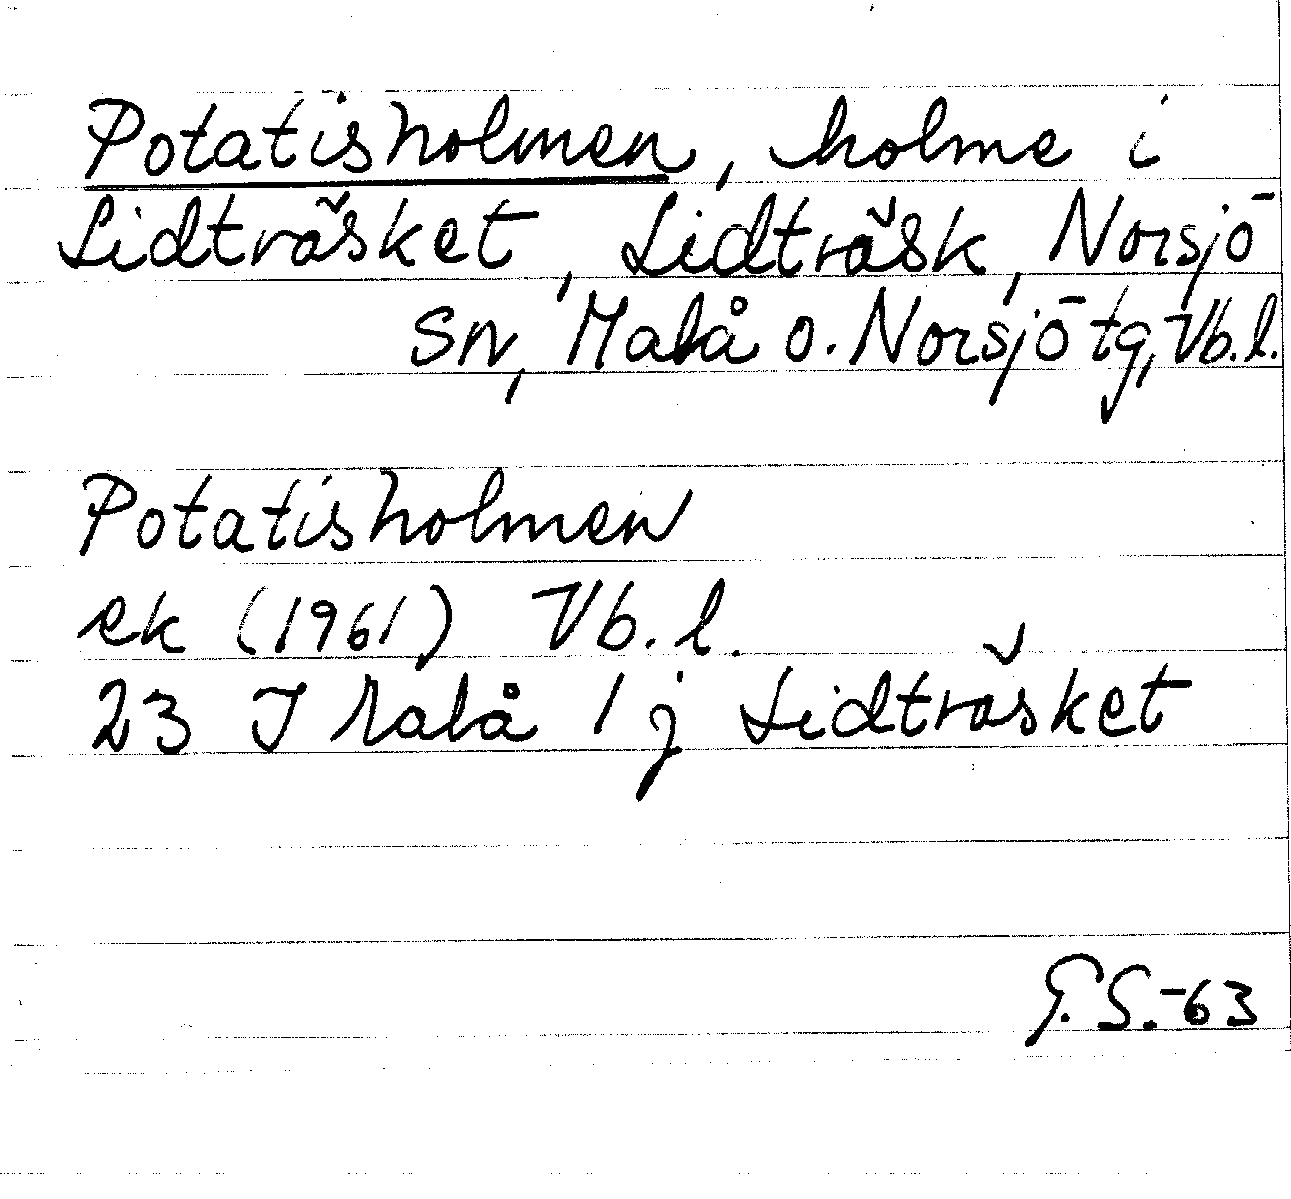 Potatisholmen, holme i
Lidträsket, Lidträsk, Norsjö
sn, Malå o. Norsjö tg, Vb. l.
Potatisholmen
ek (1961) Vb. l.
23 J Malå 1 j Lidträsket
G. S. -63